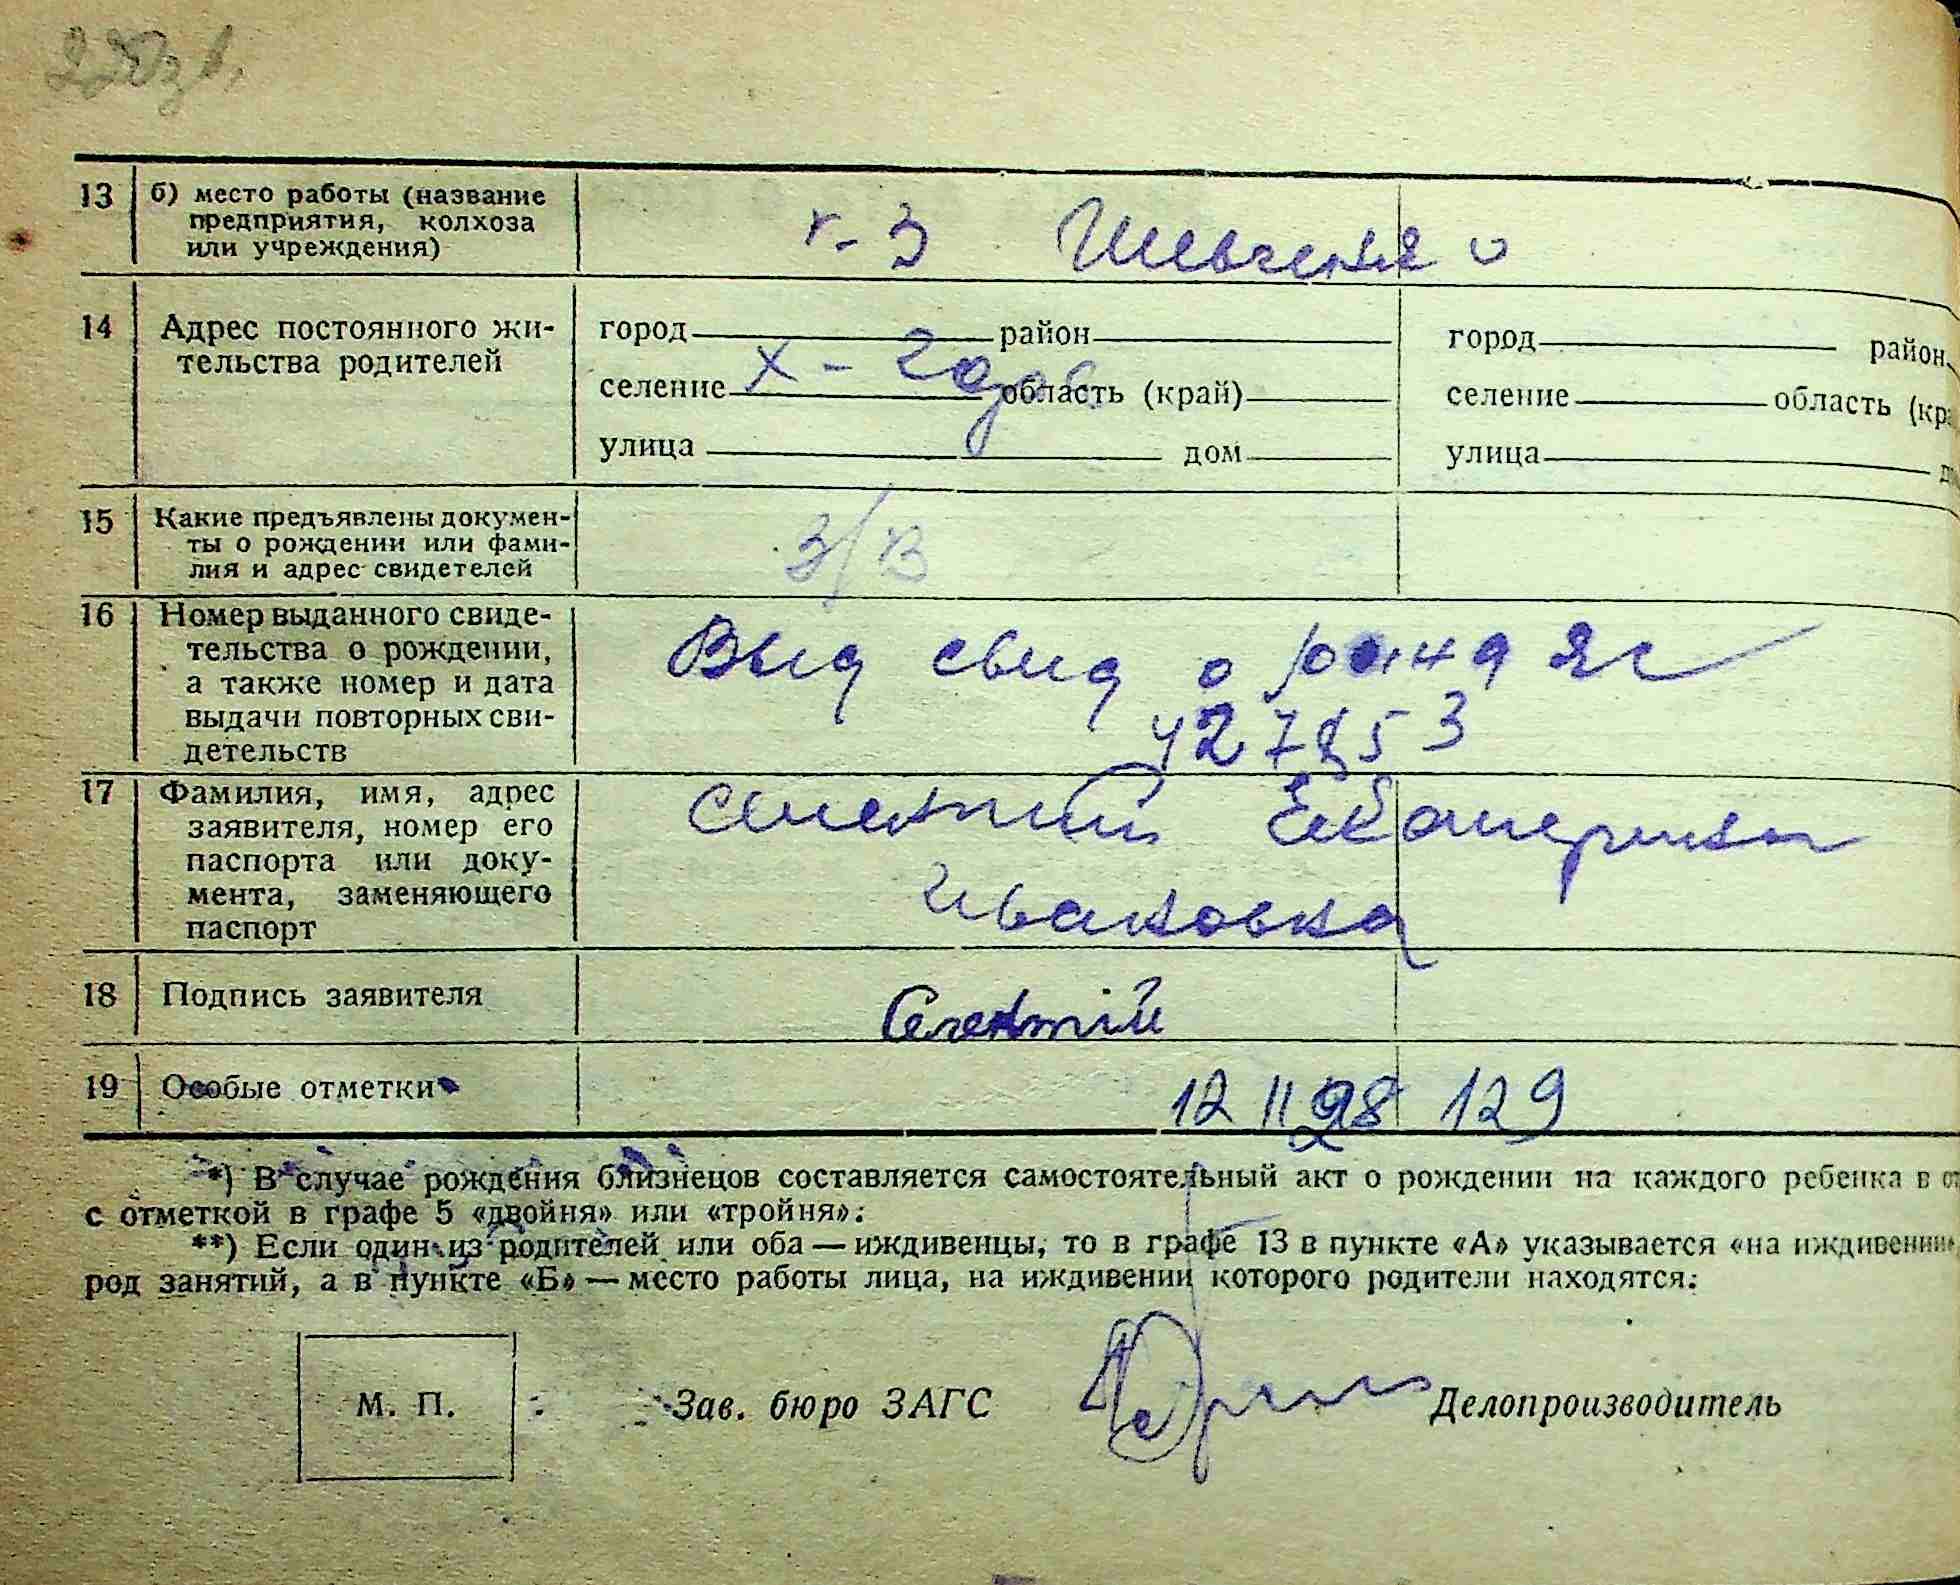 13 б) место работы (название
предприятия, колхоза
или учреждения)
к-з Шевченко
14 Адрес постоянного жи-
тельства родителей
город район город район
селение Х- область (край) селение область (кр
улица дом улица
15 Какие предъявлены докумен-
ты о рождении или фами-
лия и адрес свидетелей
З/В
16 Номер выданного свиде-
тельства о рождении,
а также номер и дата
выдачи повторных сви-
детельств
Выд свид о
427853
17 Фамилия, имя, адрес
заявителя, номер его
паспорта или доку-
мента, заменяющего
паспорт
Екатерина
Ивановна
18 Подпись заявителя
19 Особые отметки
12 II 98 129
*) В случае рождения близнецов составляется самостоятельный акт о рождении на каждого ребенка в
с отметкой в графе 5 «двойня» или «тройня».
**) Если один из родителей или оба — иждивенцы, то в графе 13 в пункте «А» указывается «на иждивении»
род занятий, а в пункте «Б» — место работы лица, на иждивении которого родители находятся.
М. П. Зав. бюро ЗАГС Делопроизводитель